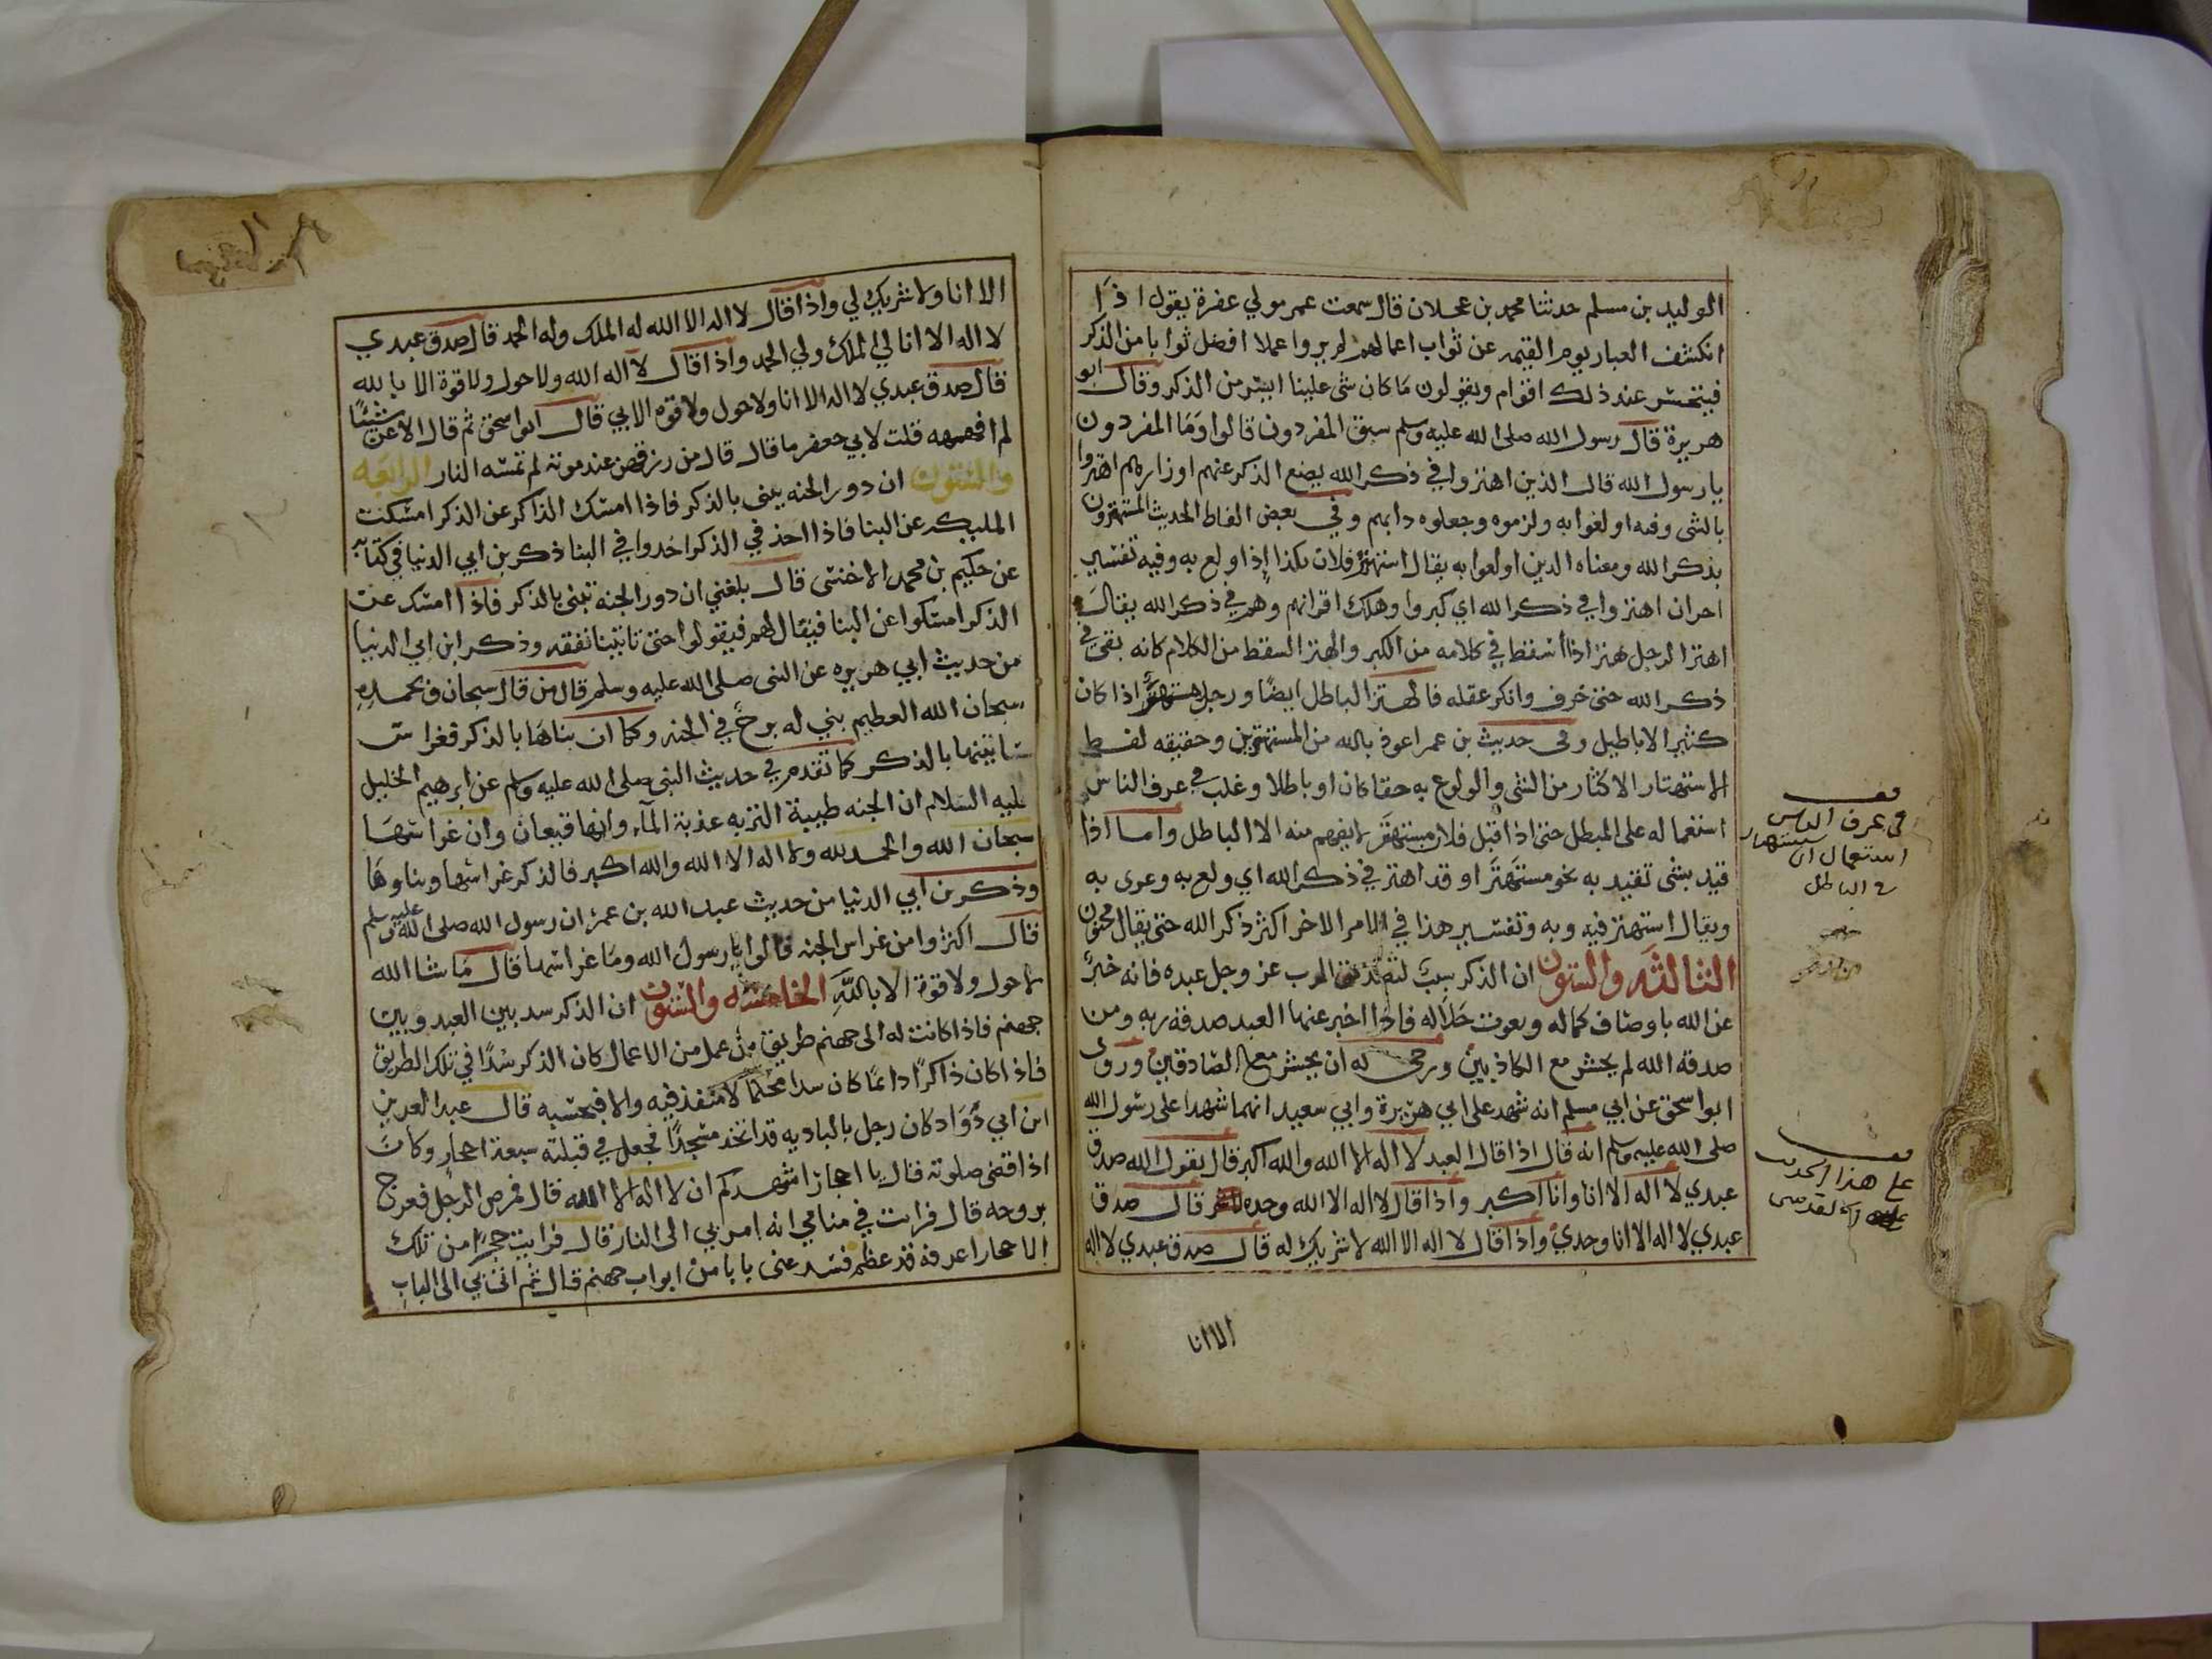 الوليد بن مسلم حدثنا محمد بن عجلان قال سمعت عمر مولي عفرة يقول اذا
انكشف العباد يوم القيمه عن ثواب اعمالهم لم يروا عملا افضل ثوابا من الذكر
فيتحسر عند ذلك اقوام ويقولون ما كان شي علينا ايسر من الذكر وقال ابو
هريرة قال رسول الله صلى الله عليه وسلم سبق المفردون قالوا وما المفردون
يا رسول الله قال الذين اهتزوا في ذكر الله يضع الذكر عنهم اوزارهم اهتزوا
بالشى وفيه اولغوا به ولزموه وجعلوه دابهم وفي بعض الفاظ الحديث المستهترون
بذكر الله ومعناه الدين اولعوا به يقال استهتر فلان بكذا إذا ولع به وفيه تفسير
اخران اهتزوا في ذكر الله اي كبروا وهلك اقرانهم وهم في ذكر الله يقال
اهتز الرجل هتز اذا أسقط في كلامه من الكبر والهتز السقط من الكلام كانه بقي في
ذكر الله حتى خرف وانكر عقله فالهتز الباطل ايضًا ورجل مستهتر اذا كان
كثير الاباطيل وفى حديث بن عمر اعوذ بالله من المستهترين وحقيقه لفظ
الاستهتار الاكثار من الشى والولوع به حقا كان او باطلا وغلب في عرف الناس
استعماله على المبطل حتى اذا قيل فلان مستهتر لا يفهم منه الا الباطل واما اذا
قيد بشى تقيد به نحو مستهتر او قد اهتز في ذكر الله اي ولع به وغرى به
ويقال استهتر فيه وبه وتفسير هذا في الامر الاخر اكثر ذكر الله حتى يقال مجنون
الثالثه والستون ان الذكر سبب لتصديق الرب عز وجل عبده فانه خبر
عن الله باوصاف كماله ونعوت جلاله فاذا اخبر عنها العبد صدقه ربه ومن
صدقه الله لم يحشر مع الكاذبين ورجي له ان يحشر مع الصادقين وروى
ابو اسحق عن ابي مسلم انه شهد على ابي هريرة وابي سعيد انهما شهدا على رسول الله
صلى الله عليه وسلم انه قال اذا قال العبد لا اله الا الله والله اكبر قال يقول الله صدق
عبدي لا اله الا انا وانا اكبر واذا قال لا اله الا الله وحده قال صدق
عبدي لا اله الا انا وحدي واذا قال لا اله الا الله لا شريك له قال صدق عبدي لا اله
الا انا
في عرف الناس
استعمال
في الباطل
على هذا الحديث
الا انا ولا شريك لي واذا قال لا اله الا الله له الملك وله الحمد قال صدق عبدي
لا اله الا انا لي الملك ولي الحمد واذا قال لا اله الله ولا حول ولا قوة الا بالله
قال صدق عبدي لا اله الا انا ولا حول ولا قوه الا بي قال ابو اسحق ثم قال الاغر شيئًا
لم افهمه قلت لابي جعفر ما قال قال من رزقهن عند موته لم تمسه النار الرابعه
والستون ان دور الجنه يبنى بالذكر فاذا امسك الذاكر عن الذكر امسكت
المليكه عن البنا فاذا اخذ في الذكر اخدوا في البنا ذكر بن ابي الدنيا في كتابه
عن حكيم بن محمد الاخنسى قال بلغني ان دور الجنه تبنى بالذكر فاذا امسك عن
الذكر امسكوا عن البنا فيقال لهم فيقولوا حتى تاتينا نفقه وذكر ابن ابي الدنيا
من حديث ابي هريره عن النبى صلى الله عليه وسلم قال من قال سبحان وبحمده
سبحان الله العظيم بني له برج في الجنه وكما ان بناها بالذكر فغراس
بساتينها بالذكر كما تقدم في حديث النبى صلى الله عليه وسلم عن ابرهيم الخليل
عليه السلام ان الجنه طيبة التربه عذبة المآء وانها قيعان وان غراسها
سبحان الله والحمد لله ولا اله الا الله والله اكبر فالذكر غراسها وبناوها
وذكر بن ابي الدنيا من حديث عبد الله بن عمر ان رسول الله صلى الله عليه وسلم
قال اكثروا من غراس الجنه قالوا يا رسول الله وما غراسها قال ما شا الله
لا حول ولا قوة الا بالله الخامسه والستون ان الذكر سد بين العبد وبين
جهنم فاذا كانت له الى جهنم طريق من عمل من الاعمال كان الذكر سدًا في تلك الطريق
فاذا كان ذاكرًا دائمًا كان سدا محكمًا لا منفذ فيه والا فبحسبه قال عبد العزيز
ابن ابي دُوَاد كان رجل بالباديه قد اتخذ مسجدًا فجعل في قبلته سبعة احجار وكان
اذا قضى صلوته قال يا احجار اشهدكم ان لا اله الا الله قال فمرض الرجل فعرج
بروحه قال فرايت في منامي انه امر بي الى النار قال فرايت حجرًا من تلك
الاحجار اعرفه قد عظم فسد عنى بابا من ابواب جهنم قال ثم اتى بي الى الباب